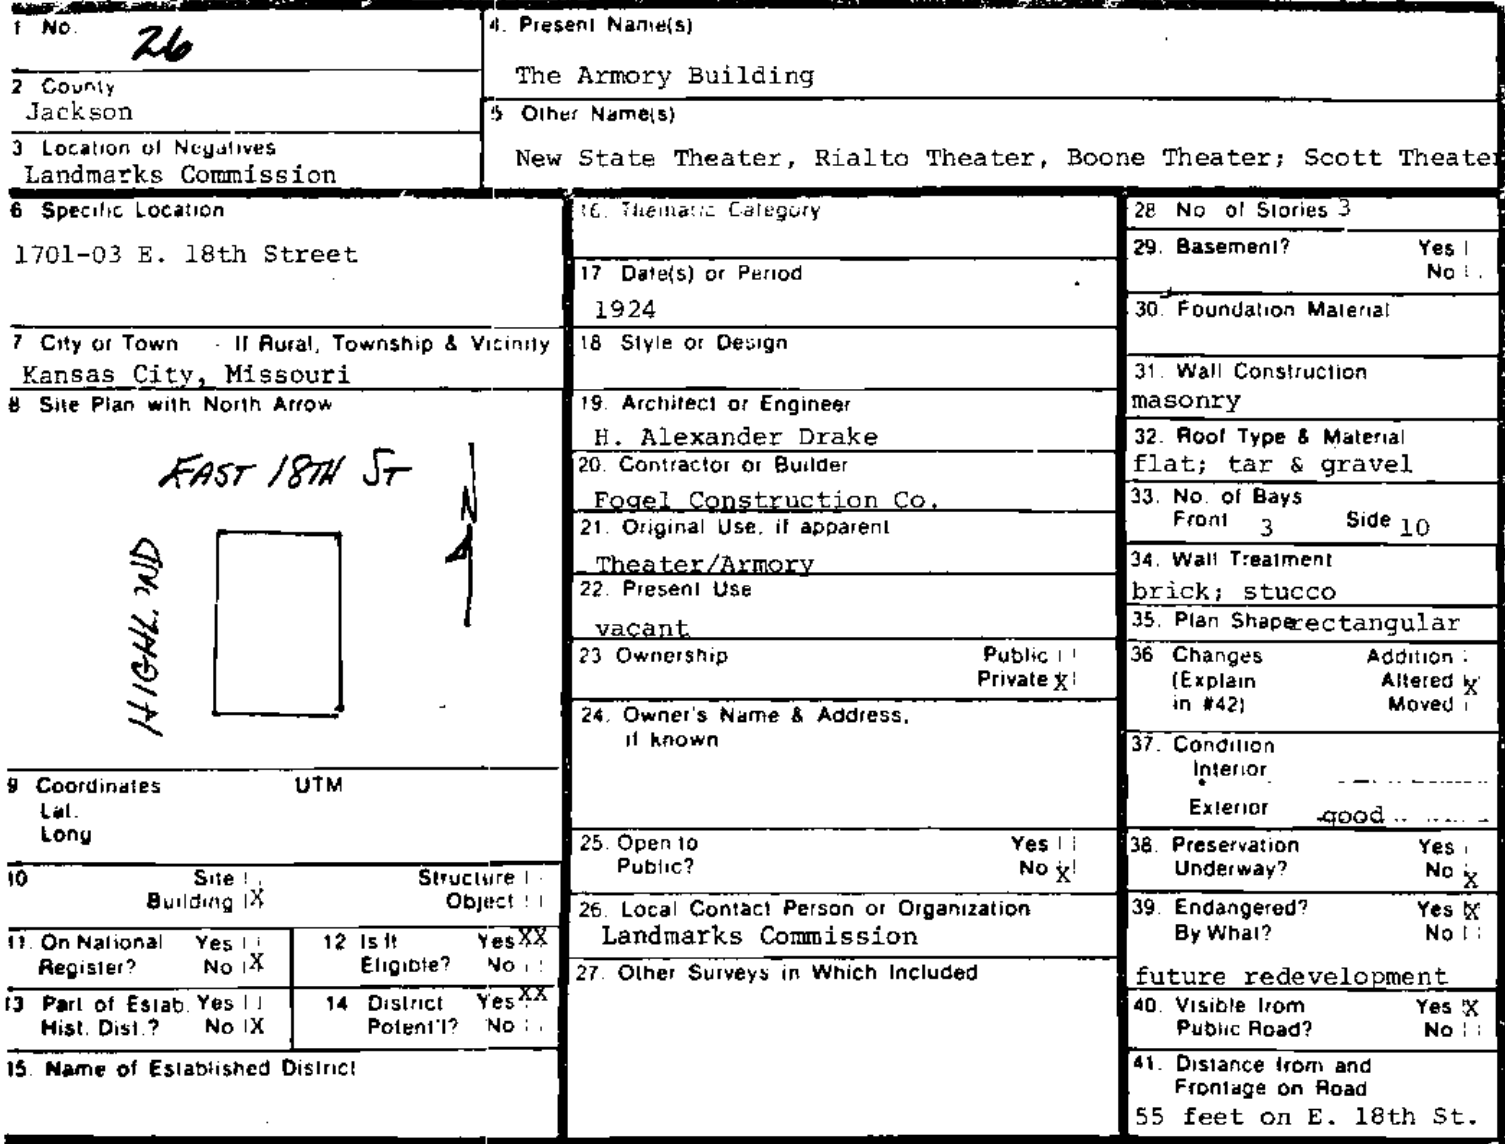 1 No. 26
2 County
Jackson
3 Location of Negatives
Landmarks Commission
4. Present Name(s)
The Armory Building
5 Other Name(s)
New State Theater, Rialto Theater, Boone Theater; Scott Theater
6 Specific Location
1701-03 E. 18th Street
7 City or Town - If Rural, Township & Vicinity
Kansas City, Missouri
8 Site Plan with North Arrow
EAST 18TH ST
N
HIGHLAND
9 Coordinates UTM
Lat.
Long
10 Site Structure
Building X Object
11. On National Yes
Register? No X
12 Is It Yes XX
Eligible? No
13 Part of Estab. Yes
Hist. Dist.? No X
14 District Yes XX
Potent'l? No
15. Name of Established District
16. Thematic Category
17 Date(s) or Period
1924
18 Style or Design
19. Architect or Engineer
H. Alexander Drake
20. Contractor or Builder
Fogel Construction Co.
21. Original Use, if apparent
Theater/Armory
22. Present Use
vacant
23 Ownership Public
Private X
24. Owner's Name & Address,
if known
25. Open to Yes
Public? No X
26. Local Contact Person or Organization
Landmarks Commission
27. Other Surveys in Which Included
28 No. of Stories 3
29. Basement? Yes
No
30. Foundation Material
31. Wall Construction
masonry
32. Roof Type & Material
flat; tar & gravel
33. No. of Bays
Front 3 Side 10
34. Wall Treatment
brick; stucco
35. Plan Shape rectangular
36 Changes Addition
(Explain Altered X
in #42) Moved
37. Condition
Interior
Exterior good
38. Preservation Yes
Underway? No X
39. Endangered? Yes X
By What? No
future redevelopment
40. Visible from Yes X
Public Road? No
41. Distance from and
Frontage on Road
55 feet on E. 18th St.